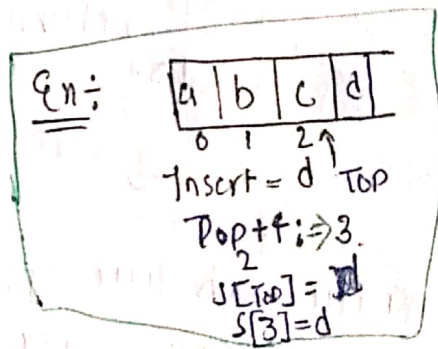 Ex:
a b c d
0 1 2
Insert = d Top
Top++; => 3.
2
S[Top] = d
S[3] = d